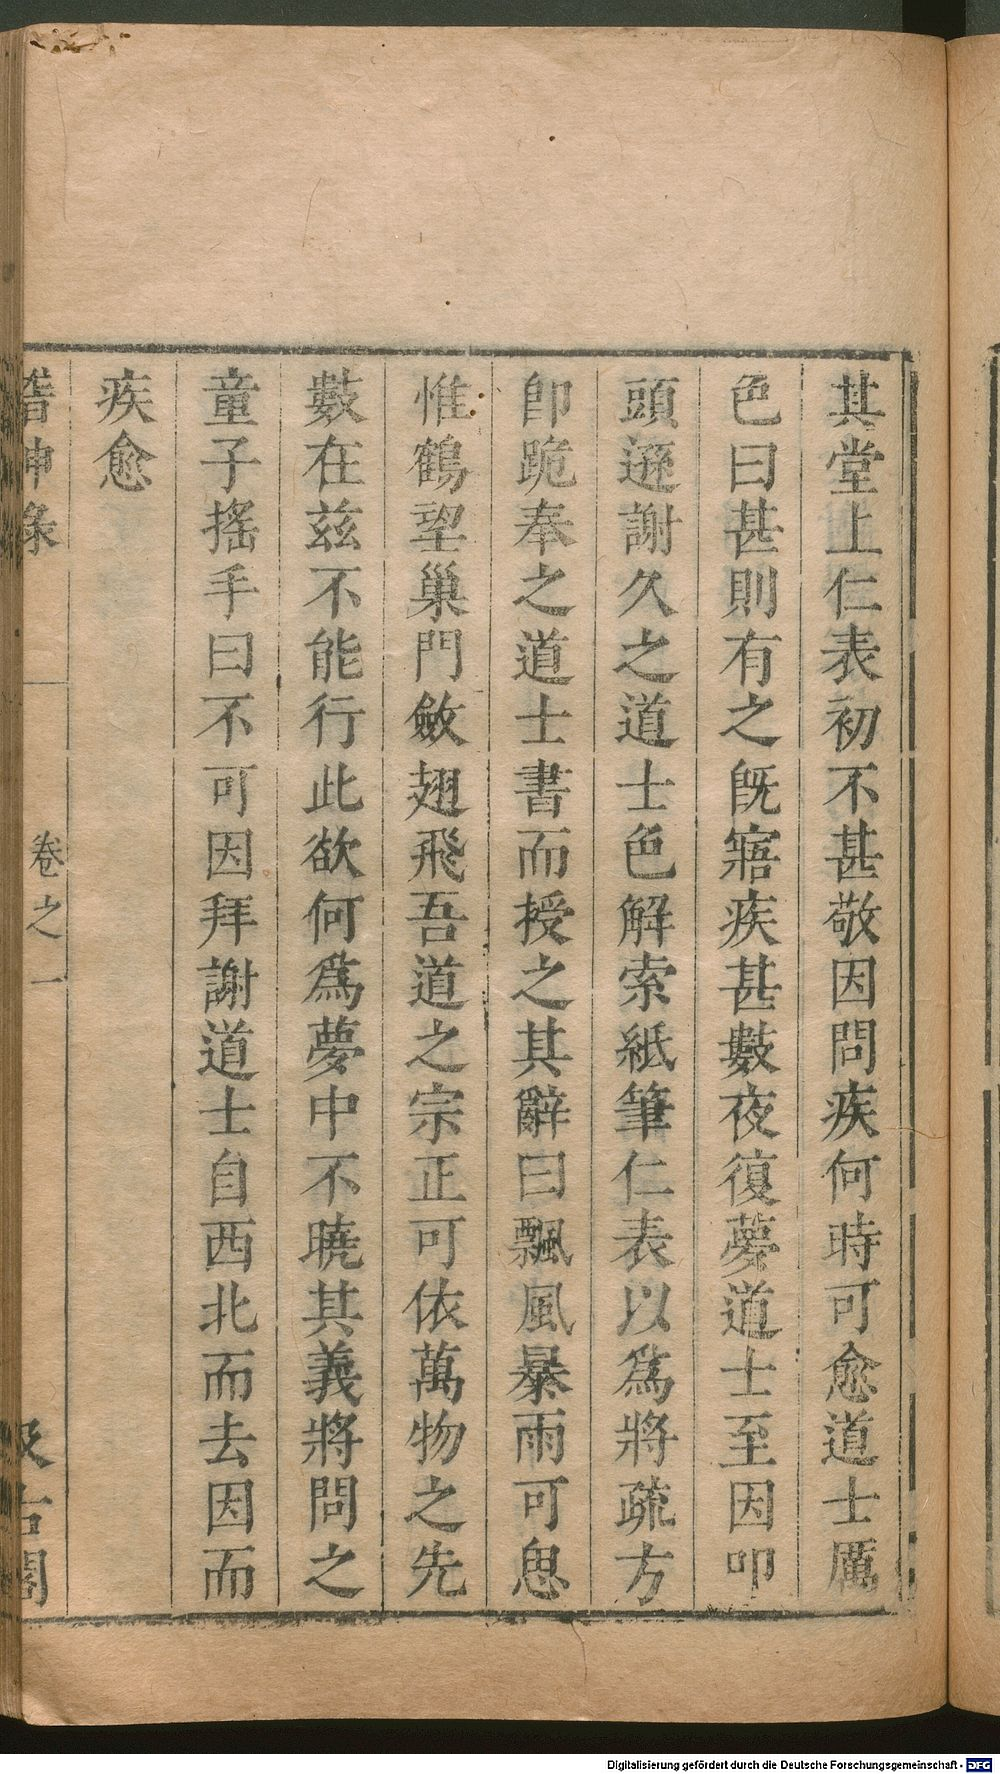 其堂上仁表初不甚敬因問疾何時可愈道士厲
色曰甚則有之旣寤疾甚數夜復夢道士至因叩
頭遜謝久之道士色解索紙筆仁表以爲將疏方
卽跪奉之道士書而授之其辭曰飄風暴雨可思
惟鶴望巢門斂翅飛吾道之宗正可依萬物之先
數在茲不能行此欲何爲夢中不曉其義將問之
童子搖手曰不可因拜謝道士自西北而去因而
疾愈
稽神錄
卷之一
汲古閣
Digitalisierung gefördert durch die Deutsche Forschungsgemeinschaft - DFG